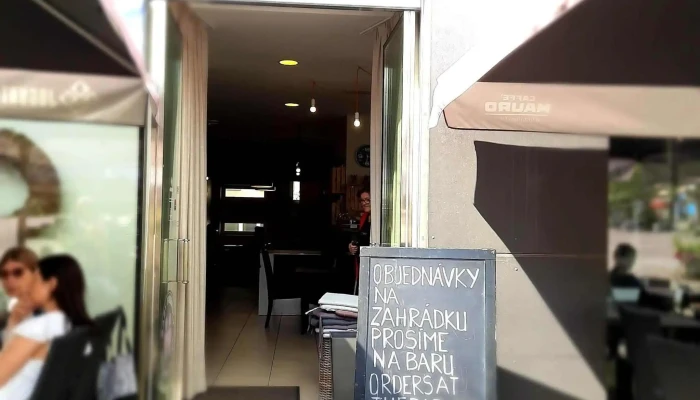 CAFFE
MAURO
OBJEDNÁVKY
NA
ZÁHRÁDKU
PROSÍME
NA BARU
ORDERS AT